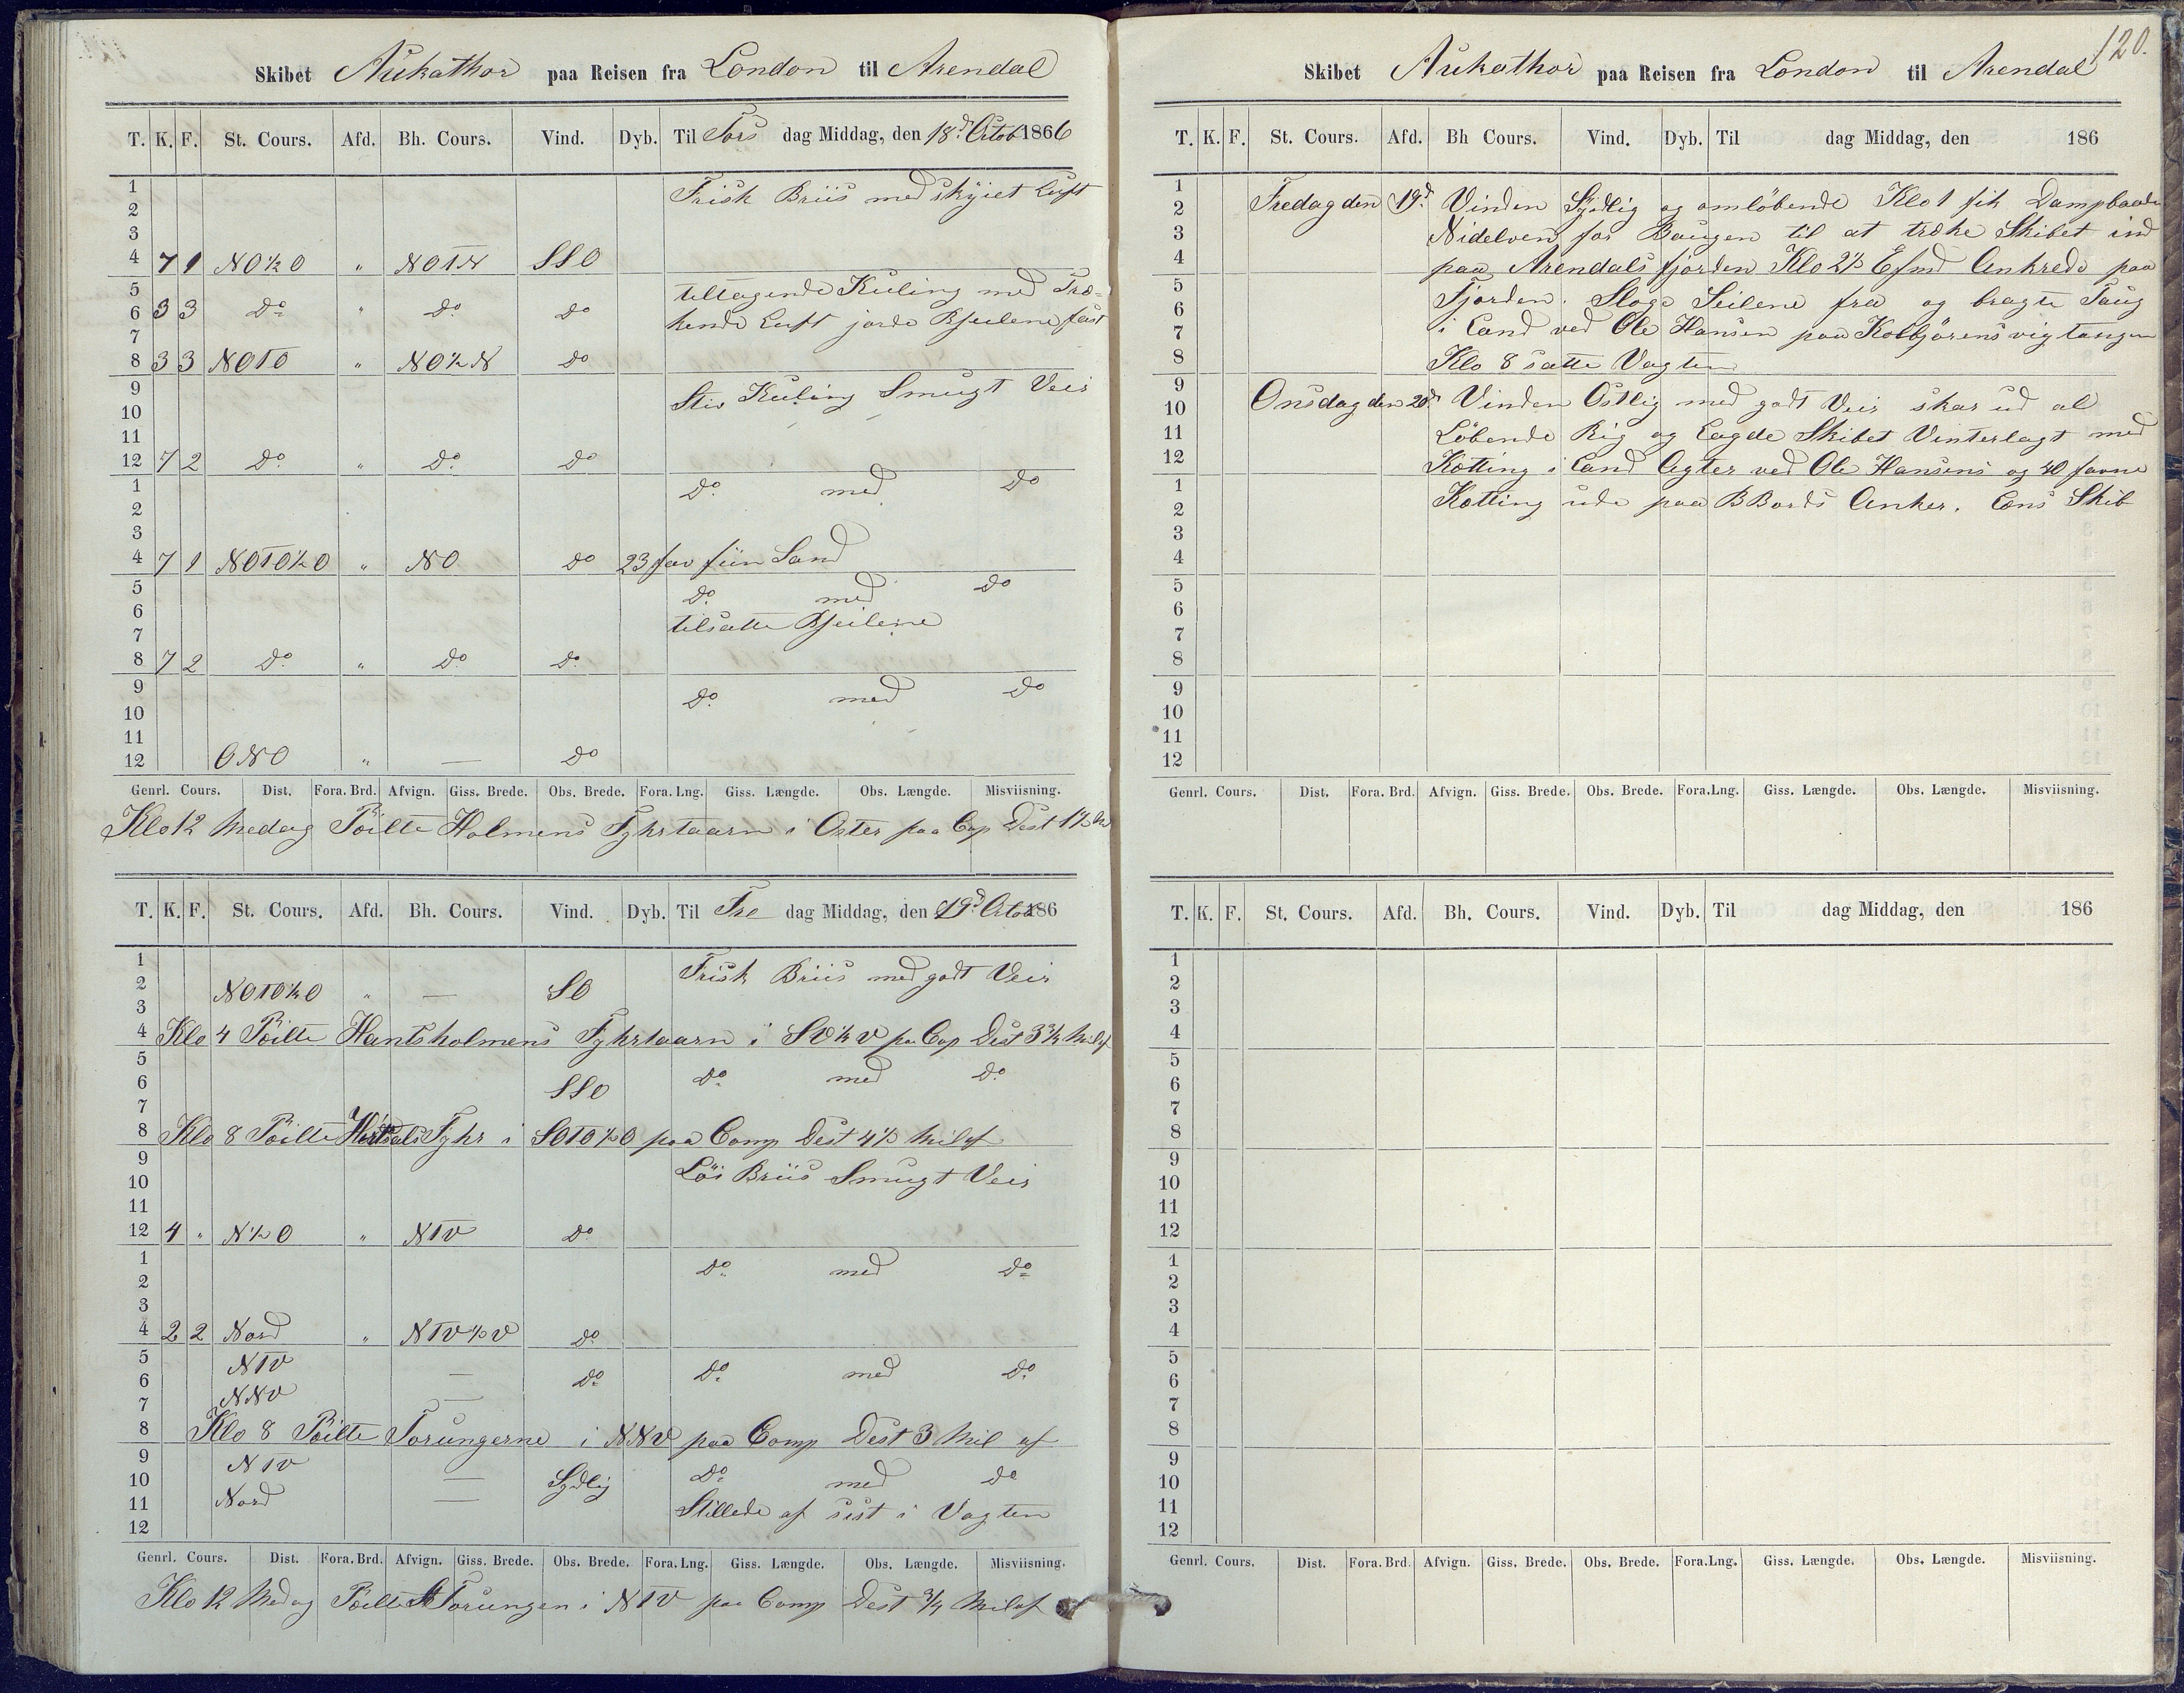 Skibet Aukathor paa Reisen fra London til Arendal
T. K. F. St. Cours. Afd. Bh. Cours. Vind. Dyb. Til Tors dag Middag, den 18d. Octob 1866
1 Frisk Briis med skyiet Luft
2
3
4 7 1 NO½O " NOTN SSO
5 tiltagende Kuling med Træ-
6 3 3 Do " Do Do kende Luft jorde Bseilene fast
7
8 3 3 NOTO " NO½N Do
9 Stiv Kuling Smugt Veir
10
11
12 7 2 Do " Do Do
1 Do med Do
2
3
4 7 1 NOTO½O " NO Do 23 fav fiin Sand
5 Do med Do
6 tilsatte Bseilene
7
8 7 2 Do " Do Do
9 Do med Do
10
11
12 ONO " — Do
Genrl. Cours. Dist. Fora. Brd. Afvign. Giss. Brede. Obs. Brede. Fora. Lng. Giss. Længde. Obs. Længde. Misviisning.
Klo 12 Medag Peilte Holmens Fyhrtaarn i Oster paa Cop Dest 1½ M
T. K. F. St. Cours. Afd. Bh. Cours. Vind. Dyb. Til Fre dag Middag, den 19d. Octob 186
1 Frisk Briis med godt Veir
2 NOTO½O " — SO
3
4 Klo 4 Peilte Hantsholmens Fyhrtaarn i SV½V pa Cop Dest 3¾ Mil af
5
6 SSO Do med Do
7
8 Klo 8 Peilte Hirtsals Fyhr i SOTO½O paa Comp Dest 4½ Mil af
9
10 Löi Briis Smugt Veir
11
12 4 " N½O " NTV Do
1 Do med Do
2
3
4 2 2 Nord " NTV½V Do
5 NTV
6 — Do Do med Do
7 NNV —
8 Klo 8 Peilte Torungerne i NNV paa Comp Dest 3 Mil af
9 NTV
10 — Sydlig Do med Do
11 Nord — Stillede af sist i Vagten
12
Genrl. Cours. Dist. Fora. Brd. Afvign. Giss. Brede. Obs. Brede. Fora. Lng. Giss. Længde. Obs. Længde. Misviisning.
Klo 12 Medag Peilte St Torungen i NTV paa Comp Dest ¾ Mil af
120.
Skibet Aukathor paa Reisen fra London til Arendal
T. K. F. St. Cours. Afd. Bh Cours. Vind. Dyb. Til dag Middag, den 186
1
2 Fredag den 19d. Vinden Sydlig og omlöbende Klo 1 fik Dampbaaden
3 Nidelven for Baugen til at træke Skibet ind
4 paa Arendals fjorden Klo 2½ Efmd Ankrede paa
5 Fjorden. Sloge Seilene fra og bragte Taug
6
7 i Land ved Ole Hansen paa Kolbjörensvig tangen
8 Klo 8 satte Vagten
9
10 Onsdag den 20d. Vinden Ostlig med godt Veir skar ud al
11 Löbende Rig og Lagde Skibet Vinterlagt med
12 Kotting i Land Agter ved Ole Hansens og 40 favne
1 Kotting ude paa BBords Anker. Lens Skib
2
3
4
5
6
7
8
9
10
11
12
Genrl. Cours. Dist. Fora. Brd. Afvign. Giss. Brede. Obs. Brede. Fora. Lng. Giss. Længde. Obs. Længde. Misviisning.
T. K. F. St. Cours. Afd. Bh. Cours. Vind. Dyb. Til dag Middag, den 186
1
2
3
4
5
6
7
8
9
10
11
12
1
2
3
4
5
6
7
8
9
10
11
12
Genrl. Cours. Dist. Fora. Brd. Afvign. Giss. Brede. Obs. Brede. Fora. Lng. Giss. Længde. Obs. Længde. Misviisning.